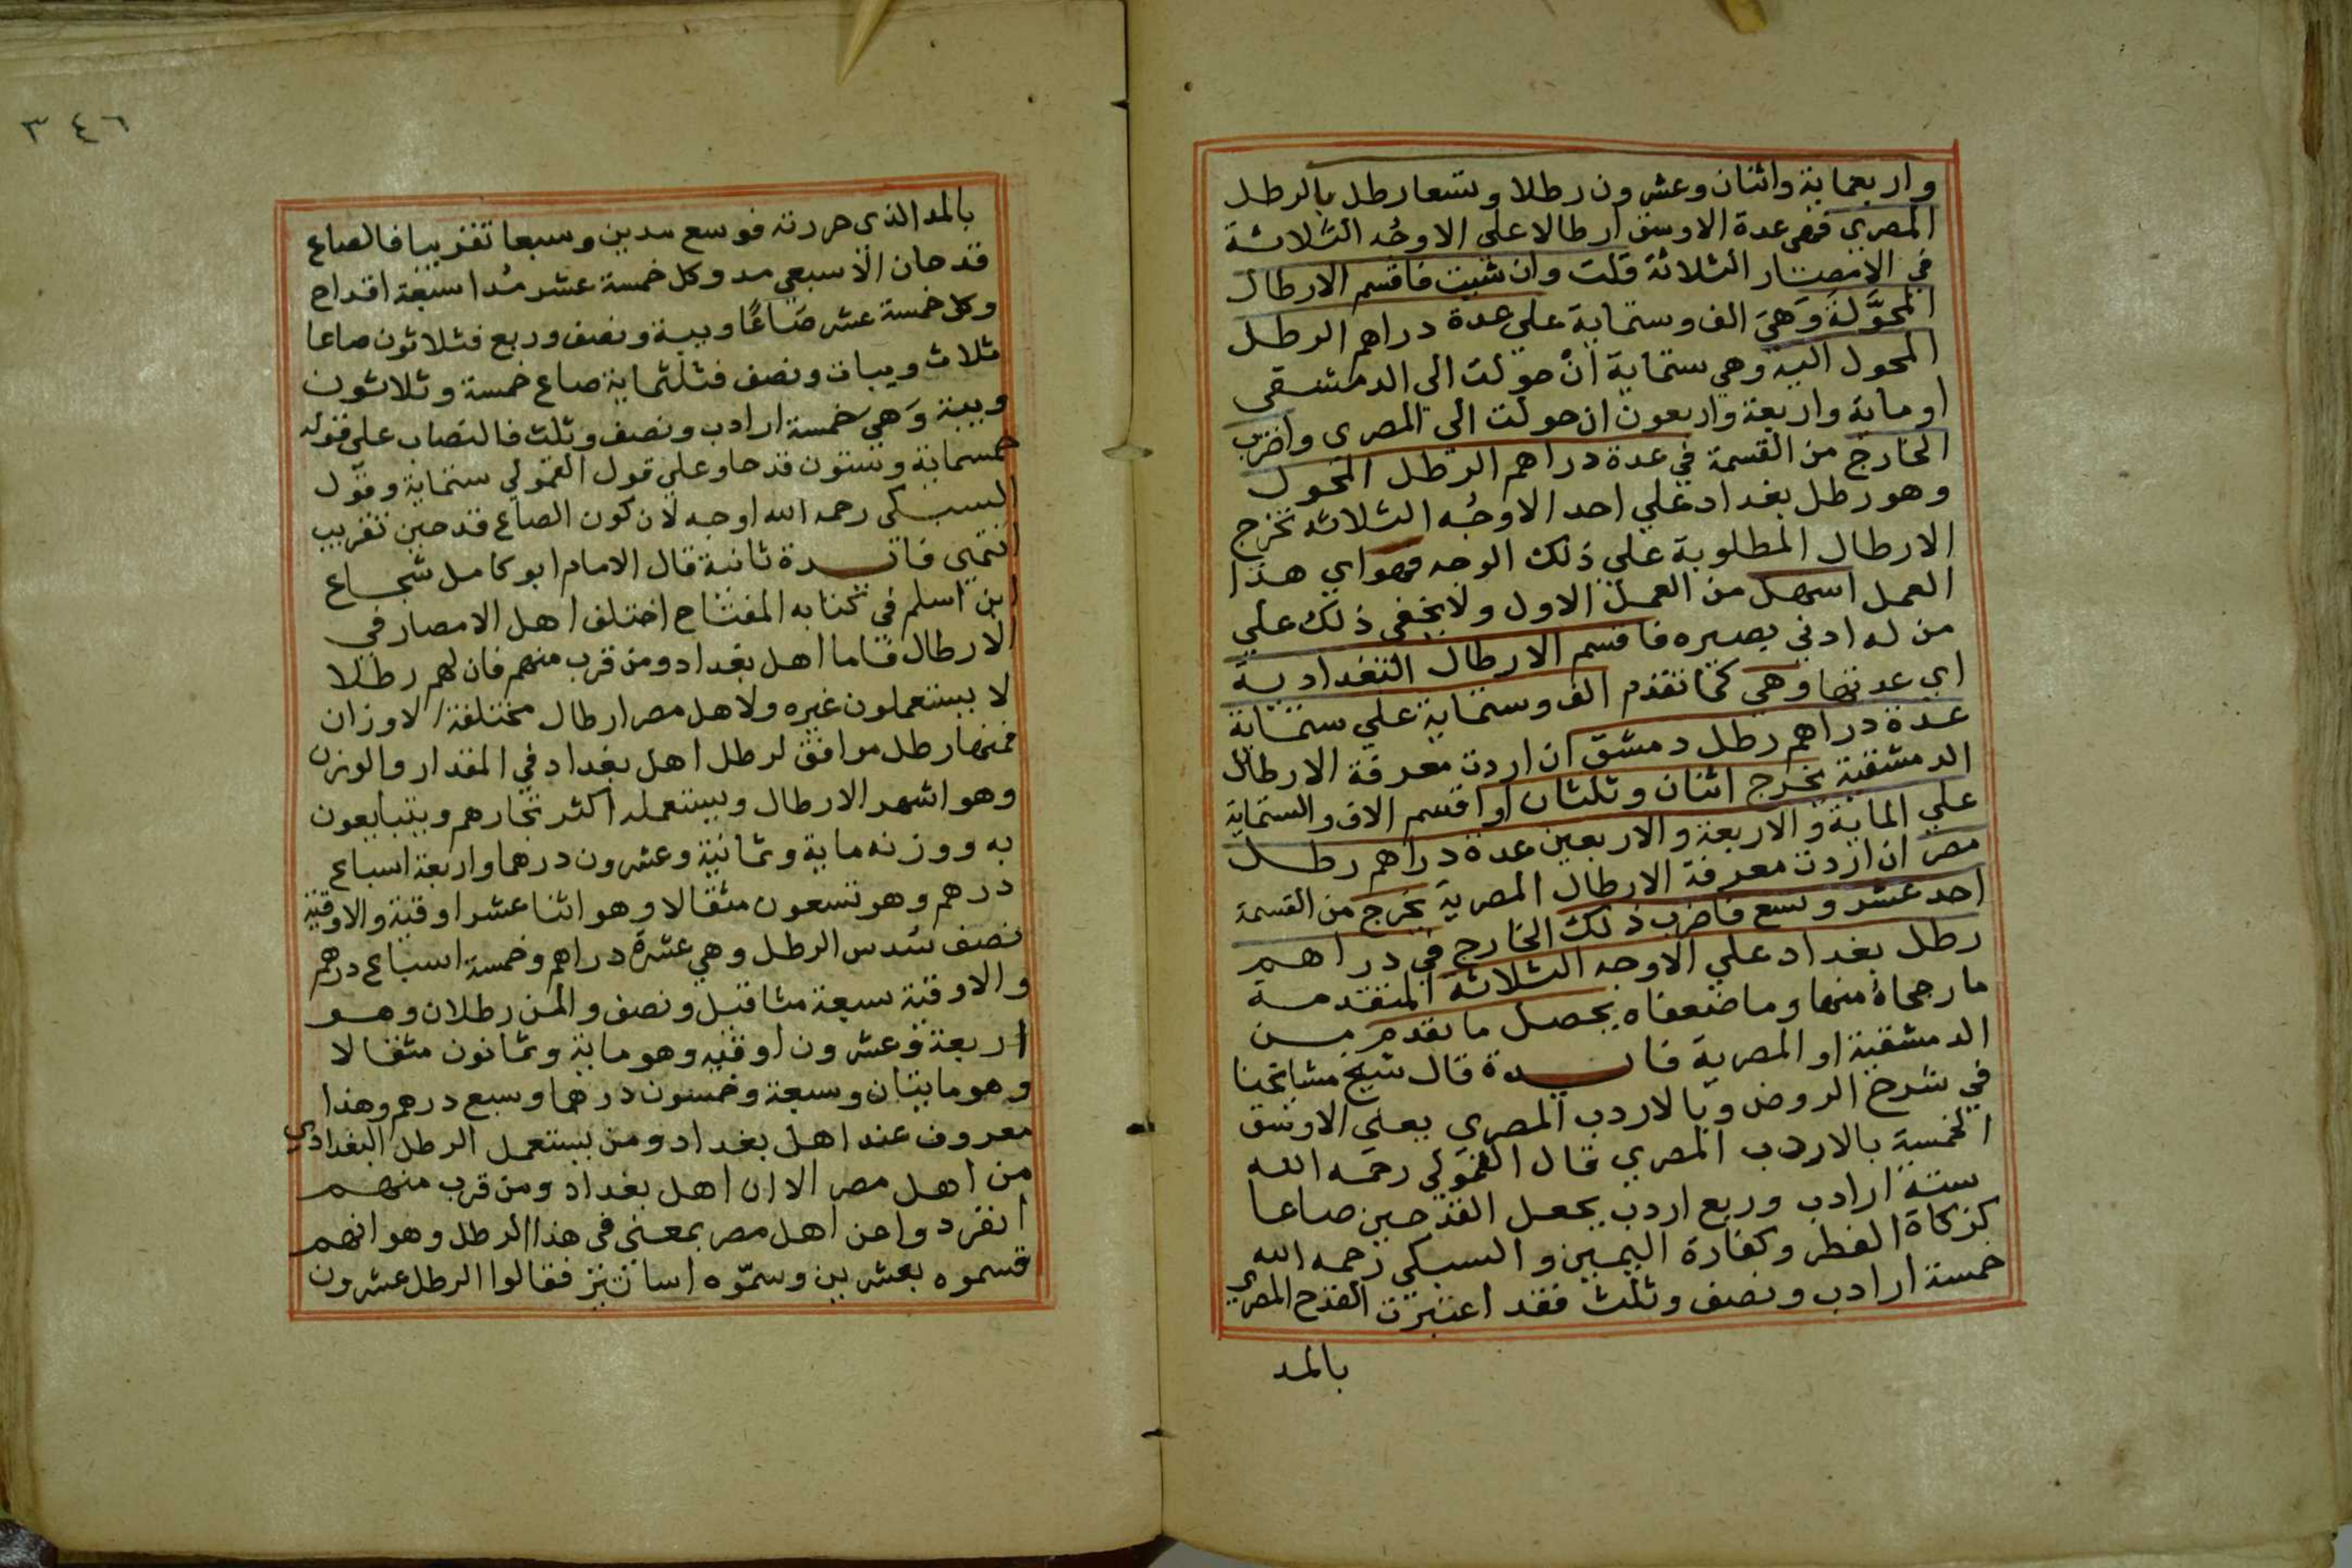 واربعماية واثنان وعشرون رطلا وتسعا رطل بالرطل
المصري فهي عدة الاوسق ارطالا علي الاوجه الثلاثة
في الامصار الثلاثة قلت وان شيت فاقسم الارطال
المحولة وهي الف وستماية علي عدة دراهم الرطل
المحول اليه وهي ستماية ان حولت الي الدمشقي
او ماية واربعة واربعون ان حولت الي المصري واضرب
الخارج من القسمة في عدة دراهم الرطل المحول
وهو رطل بغداد علي احد الاوجه الثلاثه تخرج
الارطال المطلوبة علي ذلك الوجه فهو اي هذا
العمل اسهل من العمل الاول ولا يخفي ذلك علي
من له ادني بصيره فاقسم الارطال البغدادية
اي عدتها وهي كما تقدم الف وستماية علي ستماية
عدة دراهم رطل دمشق ان اردت معرفة الارطال
الدمشقية يخرج اثنان وثلثان او اقسم الالف والستماية
علي الماية والاربعة والاربعين عدة دراهم رطل
مصر ان اردت معرفة الارطال المصرية يخرج من القسمة
احد عشر وتسع فاضرب ذلك الخارج في دراهم
رطل بغداد علي الاوجه الثلاثه المتقدمة
ما رجحاه منها وما ضعفاه يحصل ما تقدم من
الدمشقية او المصرية فايدة قال شيخ مشايخنا
في شرح الروض وبالاردب المصري يعني الاوسق
الخمسة بالاردب المصري قال القمولي رحمه الله
ستة ارادب وربع اردب بجعل القدحين صاعا
كزكاة الفطر وكفارة اليمين والسبكي رحمه الله
خمسة ارادب ونصف وثلث فقد اعتبرت القدح المصري
بالمد
٣٤٦
بالمد الذي حررته فوسع مدين وسبعا تقريبا فالصاع
قدحان الا سبعي مد وكل خمسة عشر مدا سبعة اقداح
وكل خمسة عشر صاعا ويبة ونصف وربع فثلاثون صاعا
ثلاث ويبات ونصف فثلثماية صاع خمسة وثلاثون
ويبة وهي خمسة ارادب ونصف وثلث فالنصاب علي قوله
خمسماية وستون قدحا وعلي قول القمولي ستماية وقول
السبكي رحمه الله اوجه لان كون الصاع قدحين تقريب
انتهى فايدة ثانية قال الامام ابو كامل شجاع
ابن اسلم في كتابه المفتاح اختلف اهل الامصار في
الارطال فاما اهل بغداد ومن قرب منهم فان لهم رطلا
لا يستعملون غيره ولاهل مصر ارطال مختلفة الاوزان
فمنها رطل موافق لرطل اهل بغداد في المقدار والوزن
وهو اشهر الارطال ويستعمله اكثر تجارهم ويتبايعون
به ووزنه ماية وثمانية وعشرون درهما واربعة اسباع
درهم وهو تسعون مثقالا وهو اثنا عشر اوقية والاوقية
نصف سدس الرطل وهي عشرة دراهم وخمسة اسباع درهم
والاوقية سبعة مثاقيل ونصف والمن رطلان وهو
اربعة وعشرون اوقيه وهو ماية وثمانون مثقالا
وهو مايتان وسبعة وخمسون درهما وسبع درهم وهذا
معروف عند اهل بغداد ومن يستعمل الرطل البغدادي
من اهل مصر الا ان اهل بغداد ومن قرب منهم
انفردوا عن اهل مصر بمعني في هذا الرطل وهو انهم
قسموه بعشرين وسموه اساتير فقالوا الرطل عشرون